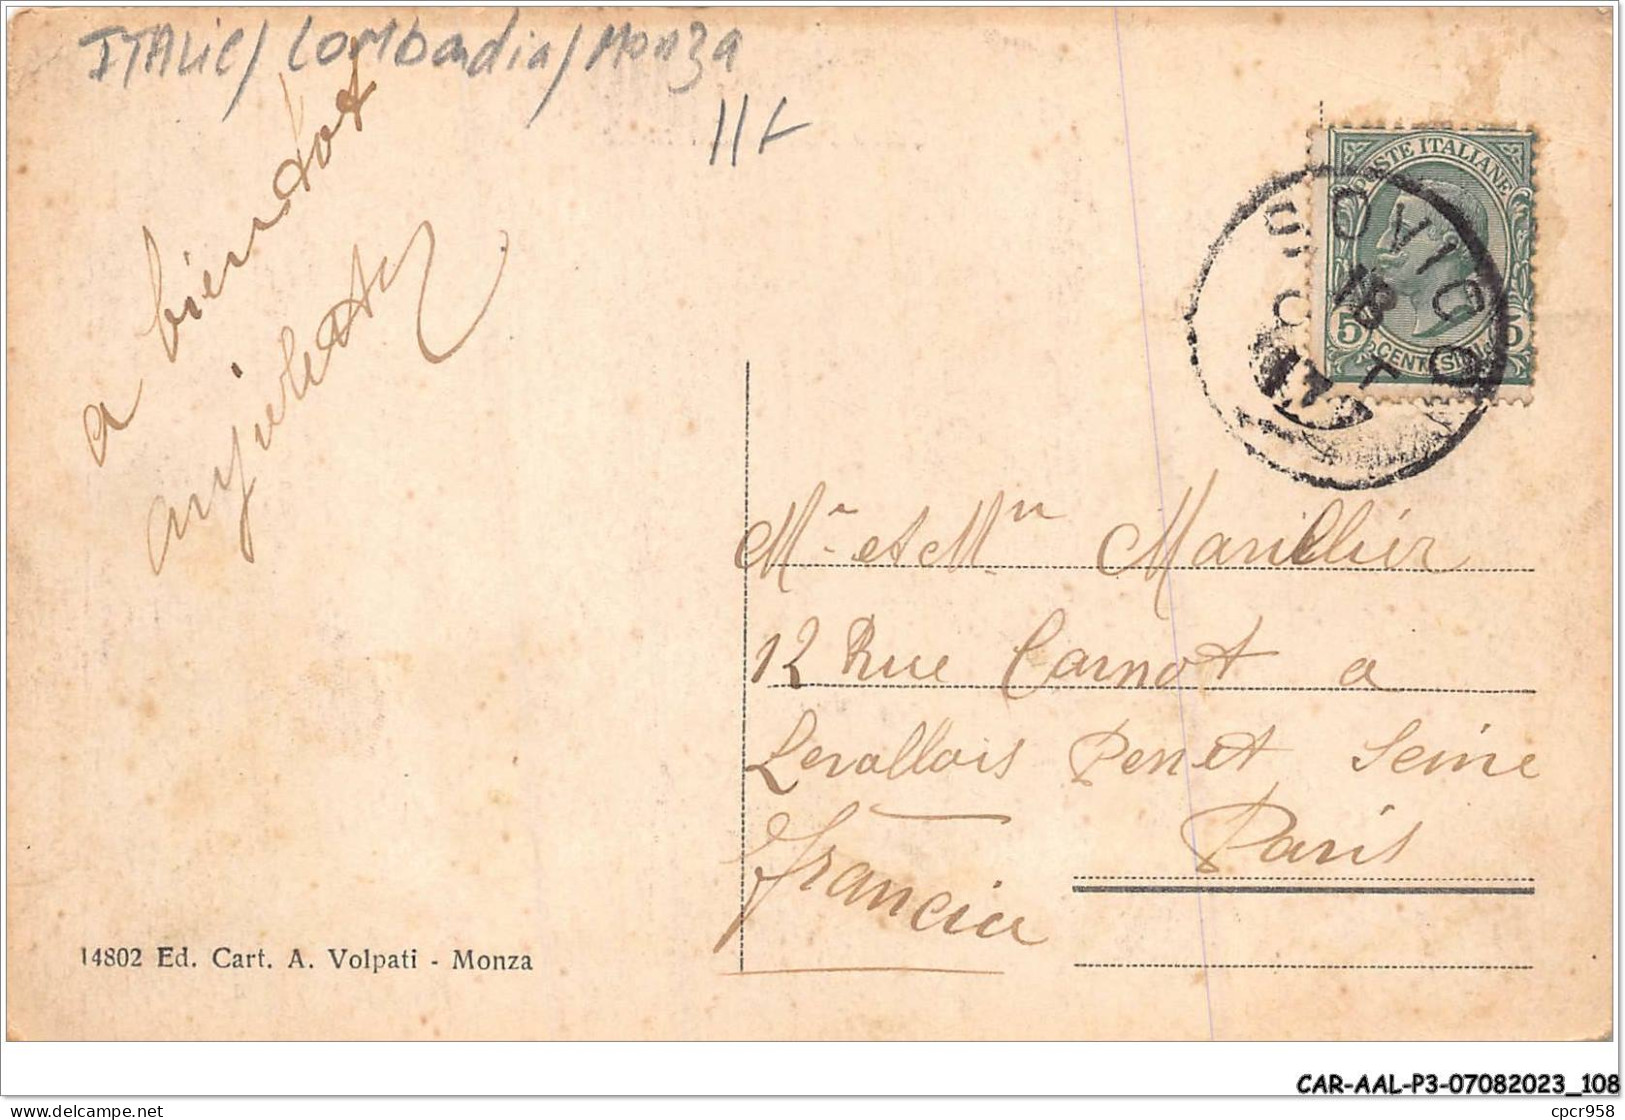 ITALIE/Lombardia/Monza
11
a bientot
POSTE ITALIANE
5 CENTESIMI 5
Mr et Mm Marillier
12 Rue Carnot a
Levallois Perret Seine
Paris
Francia
14802 Ed. Cart. A. Volpati - Monza
CAR-AAL-P3-07082023_108
delcampe.net
cpcr958